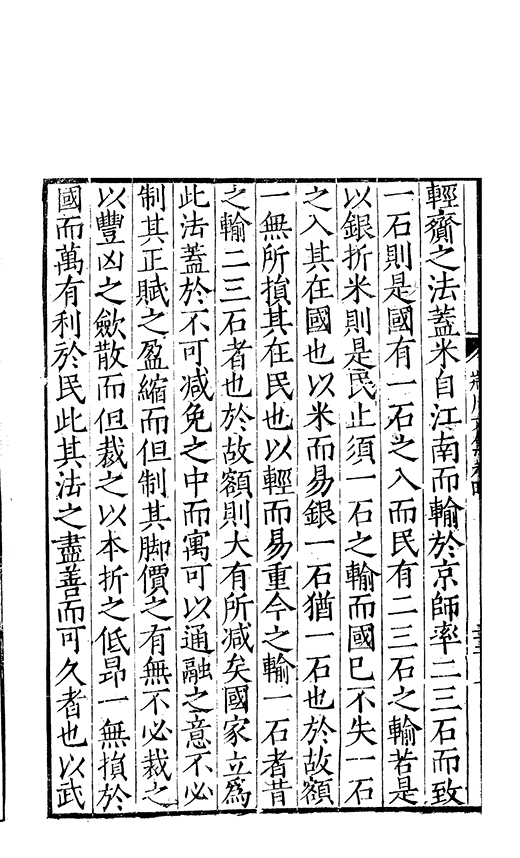 輕齎之法蓋米自江南而輸於京師率二三石而致
一石則是國有一石之入而民有二三石之輸若是
以銀折米則是民止須一石之輸而國已不失一石
之入其在國也以米而易銀一石猶一石也於故額
一無所損其在民也以輕而易重今之輸一石者昔
之輸二三石者也於故額則大有所减矣國家立爲
此法蓋於不可减免之中而寓可以通融之意不必
制其正賦之盈縮而但制其脚價之有無不必裁之
以豐凶之歛散而但裁之以本折之低昂一無損於
國而萬有利於民此其法之盡善而可久者也以武